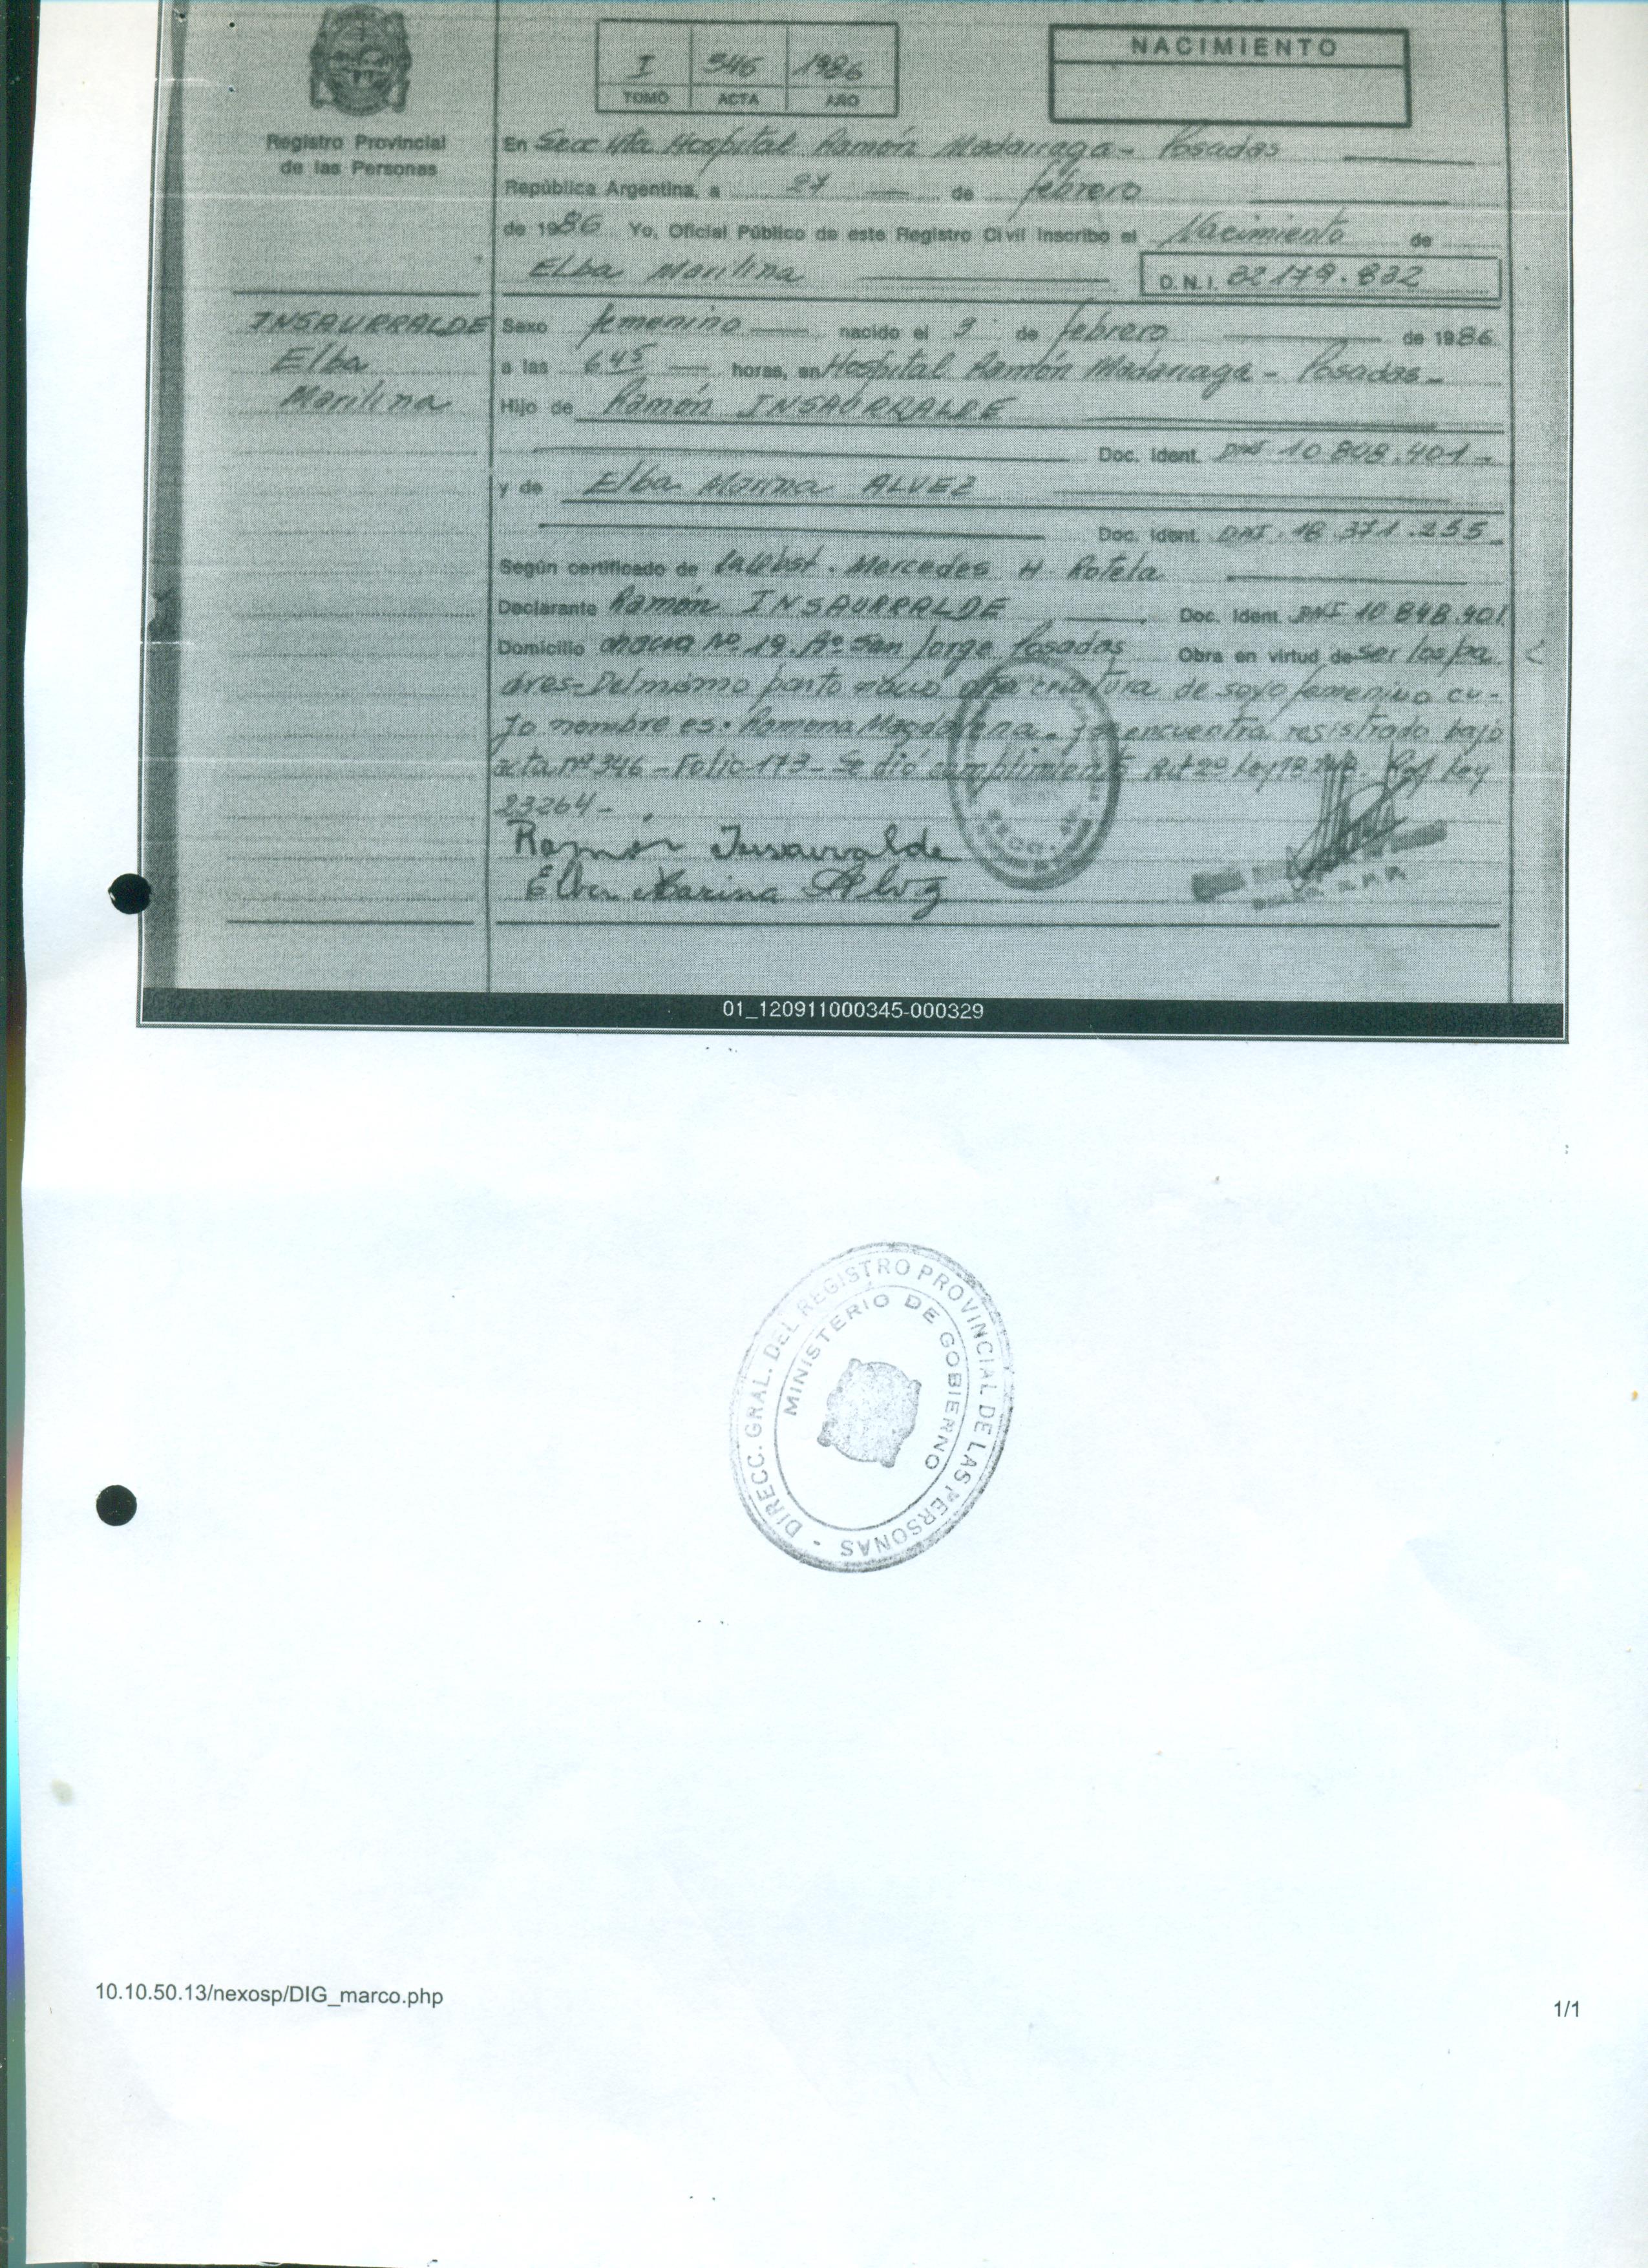 I 346 1986
TOMO ACTA AÑO
NACIMIENTO
Registro Provincial
de las Personas
En Secc 4ta Hospital Ramón Madariaga - Posadas
República Argentina, a 27 de febrero
de 1986 Yo, Oficial Público de este Registro Civil inscribo el Nacimiento de
Elba Marilina D.N.I. 32 179.832
INSAURRALDE
Elba
Marilina
Sexo femenino nacido el 9 de febrero de 1986
a las 6 45 horas, en Hospital Ramón Madariaga - Posadas -
Hijo de Ramón INSAURRALDE
Doc. Ident. DNI 10.848.401 -
y de Elba Marina ALVEZ
Doc. Ident. DNI. 18.371.255 -
Según certificado de Mercedes H Rotela
Declarante Ramón INSAURRALDE Doc. Ident. DNI 10 848.401
Domicilio chacra Nº 19. Bº San Jorge Posadas Obra en virtud de ser los pa
dres - Del mismo parto nacio otra criatura de sexo femenino cu-
yo nombre es: Ramona Magdalena. y se encuentra registrado bajo
acta nº 346 - Folio 173 - Se dió cumplimiento Art 2º Ley 18 248. Ley
23264 -
Ramón Insaurralde
Elba Marina Alvez
01_120911000345-000329
DIRECC. GRAL. DEL REGISTRO PROVINCIAL DE LAS PERSONAS -
MINISTERIO DE GOBIERNO
10.10.50.13/nexosp/DIG_marco.php
1/1